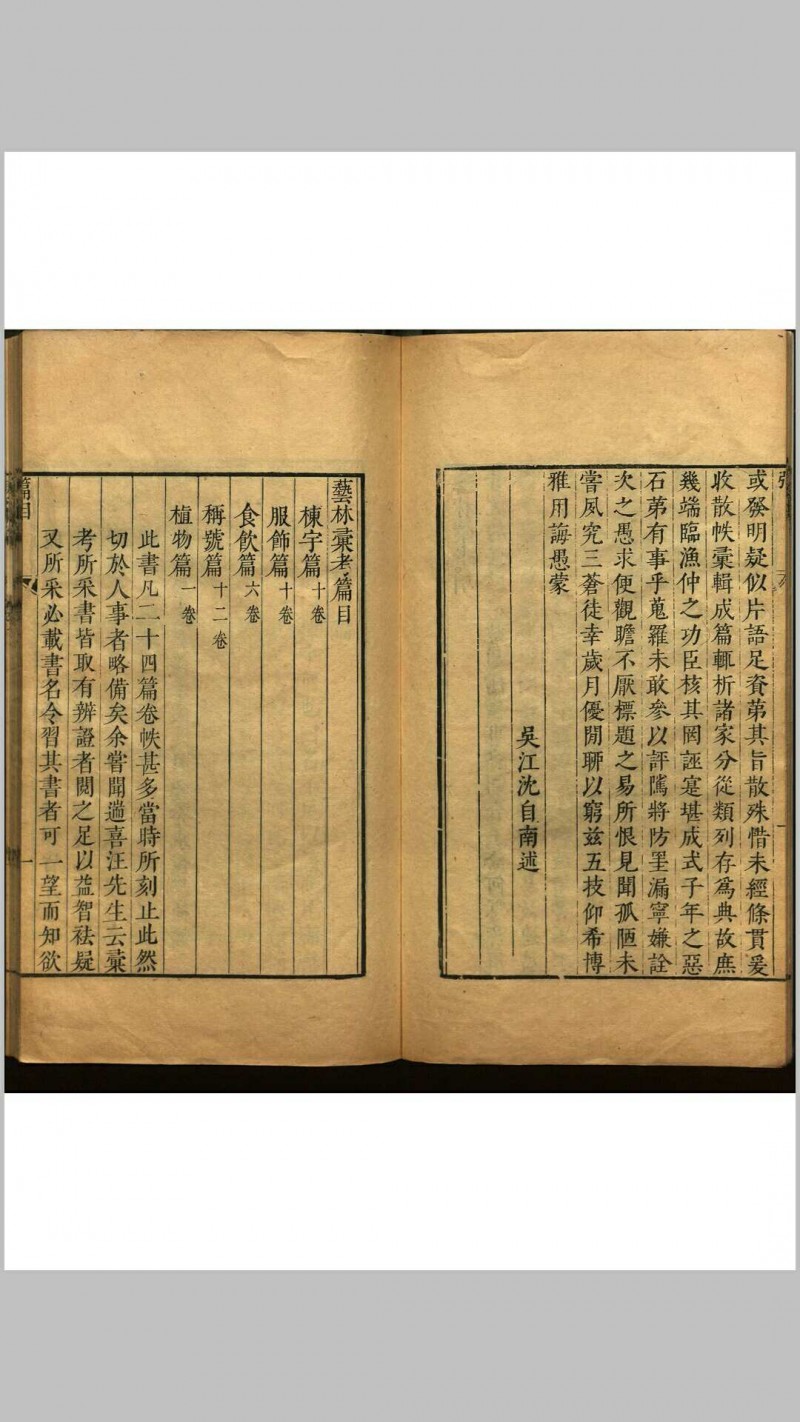 或發明疑似片語足資第其旨散殊惜未經條貫爰
收散帙彙輯成篇輒析諸家分從類列存爲典故庶
幾端臨漁仲之功臣核其罔誣寔堪成式子年之惡
石第有事乎蒐羅未敢參以評隲將防罣漏寧嫌詮
次之愚求便觀瞻不厭標題之易所恨見聞孤陋未
嘗夙究三蒼徒幸歲月優閒聊以窮兹五技仰希博
雅用誨愚蒙
吳江沈自南述
藝林彙考篇目
棟宇篇十卷
服飾篇十卷
食飲篇六卷
稱號篇十二卷
植物篇一卷
此書凡二十四篇卷帙甚多當時所刻止此然
切於人事者略備矣余嘗聞遄喜汪先生云彙
考所采書皆取有辨證者閱之足以益智祛疑
又所采必載書名令習其書者可一望而知欲
篇目
一